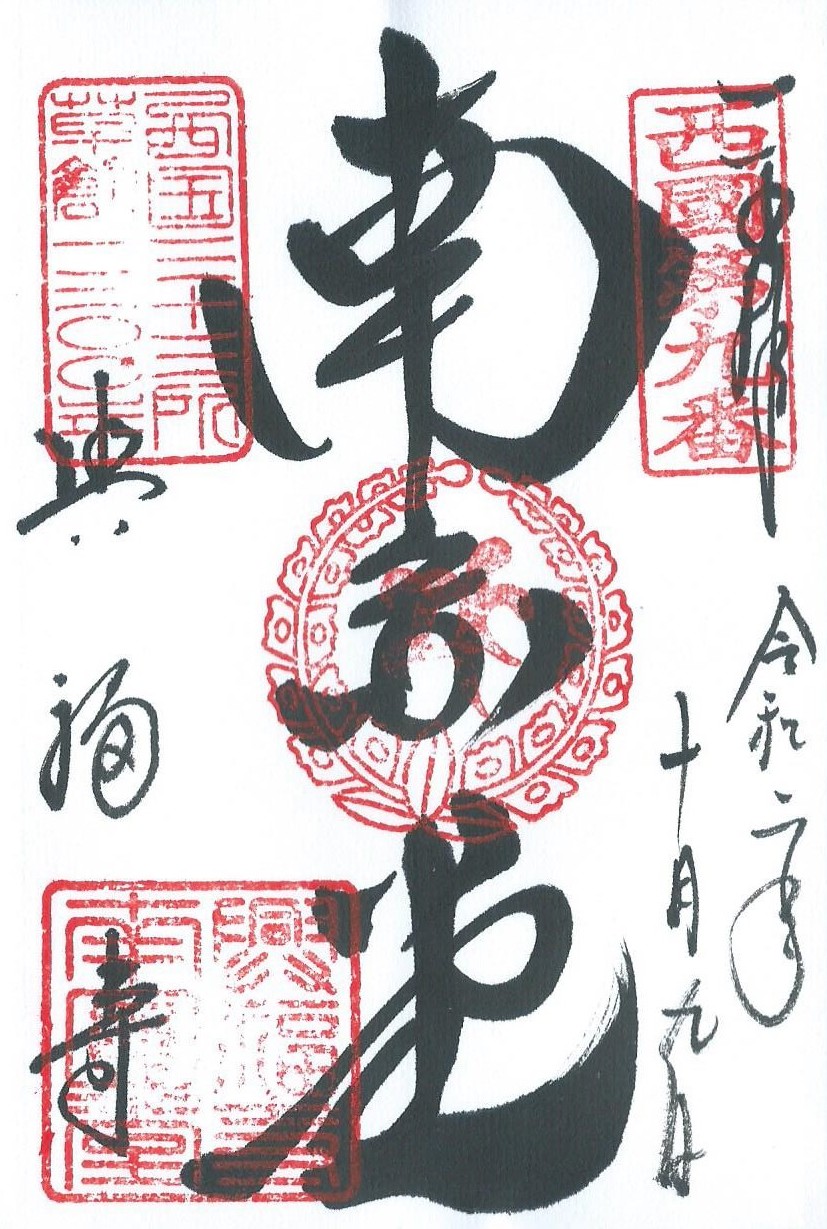 奉拝
令和二年
十月九日
西國第九番
南円堂
西国三十三所
草創一三〇〇年
興福寺
興福寺
南円堂